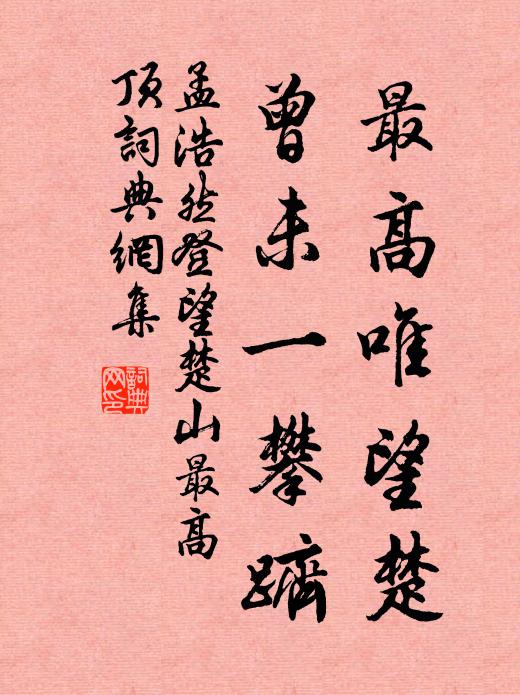 最高唯望楚
曾未一攀躋
孟浩然登望楚山最高
頂詞典網集
詞典
网印